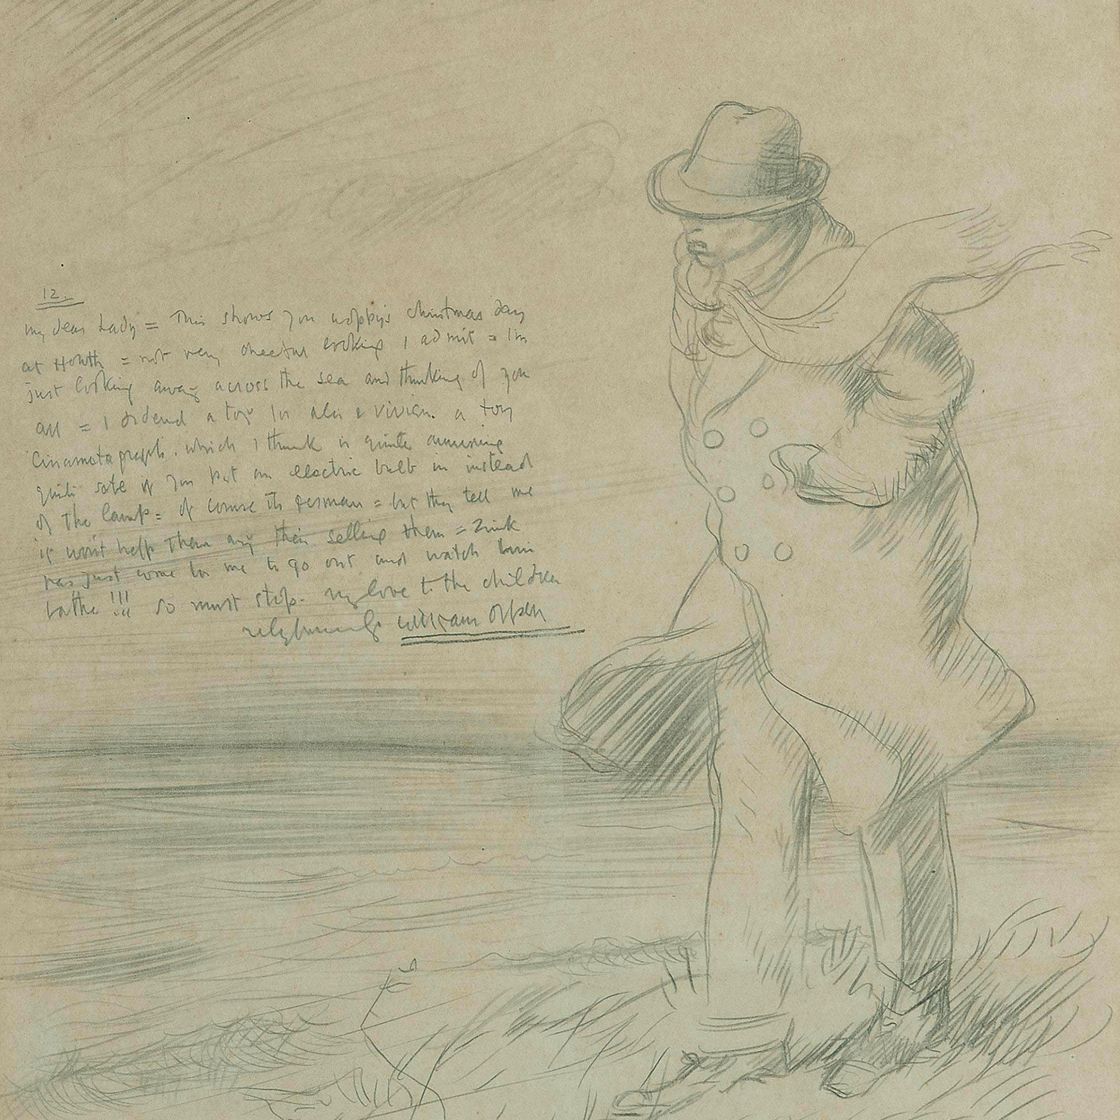 12.
my dear Lady = This shows you woppy's christmas day
at Howth = not very cheerful looking I admit = Im
just looking away across the sea and thinking of you
all = I ordered a toy for alec & vivian. a toy
cinamatograph. which I think is quite amusing
quite safe if you put an electric bulb in instead
of the lamp = of course its german = but they tell me
it won't help them any their selling them = Zink
has just come for me to go out and watch him
bathe !!! so must stop. my love to the children
William Orpen